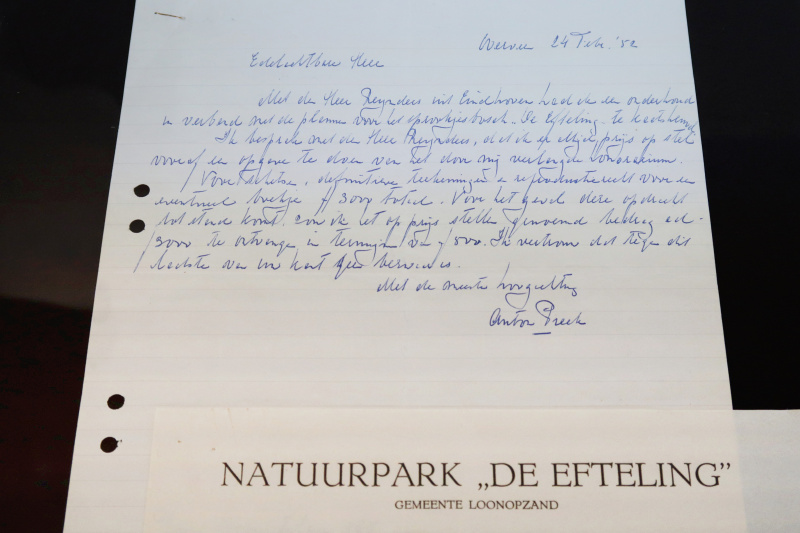 24 Febr. '52
Edelachtbare Heer
Met den Heer Reynders uit Eindhoven had ik een onderhoud
in verband met de plannen voor het sprookjesbosch „De Efteling" te
Ik besprak met den Heer Reynders, dat ik er altijd prijs op stel
vooraf een opgave te doen van het door mij verlangde honorarium.
Voor schetsen, definitieve teekeningen en reproductierecht voor een
eventueel boekje f 3000 totaal. Voor het geval deze opdracht
tot stand komt, zou ik het op prijs stellen genoemd bedrag ad.
3000 te ontvangen in termijnen van f 500. Ik vertrouw dat tegen dit
laatste van uw kant geen bezwaar is.
Met de meeste hoogachting
Anton Pieck
NATUURPARK „DE EFTELING"
GEMEENTE LOONOPZAND